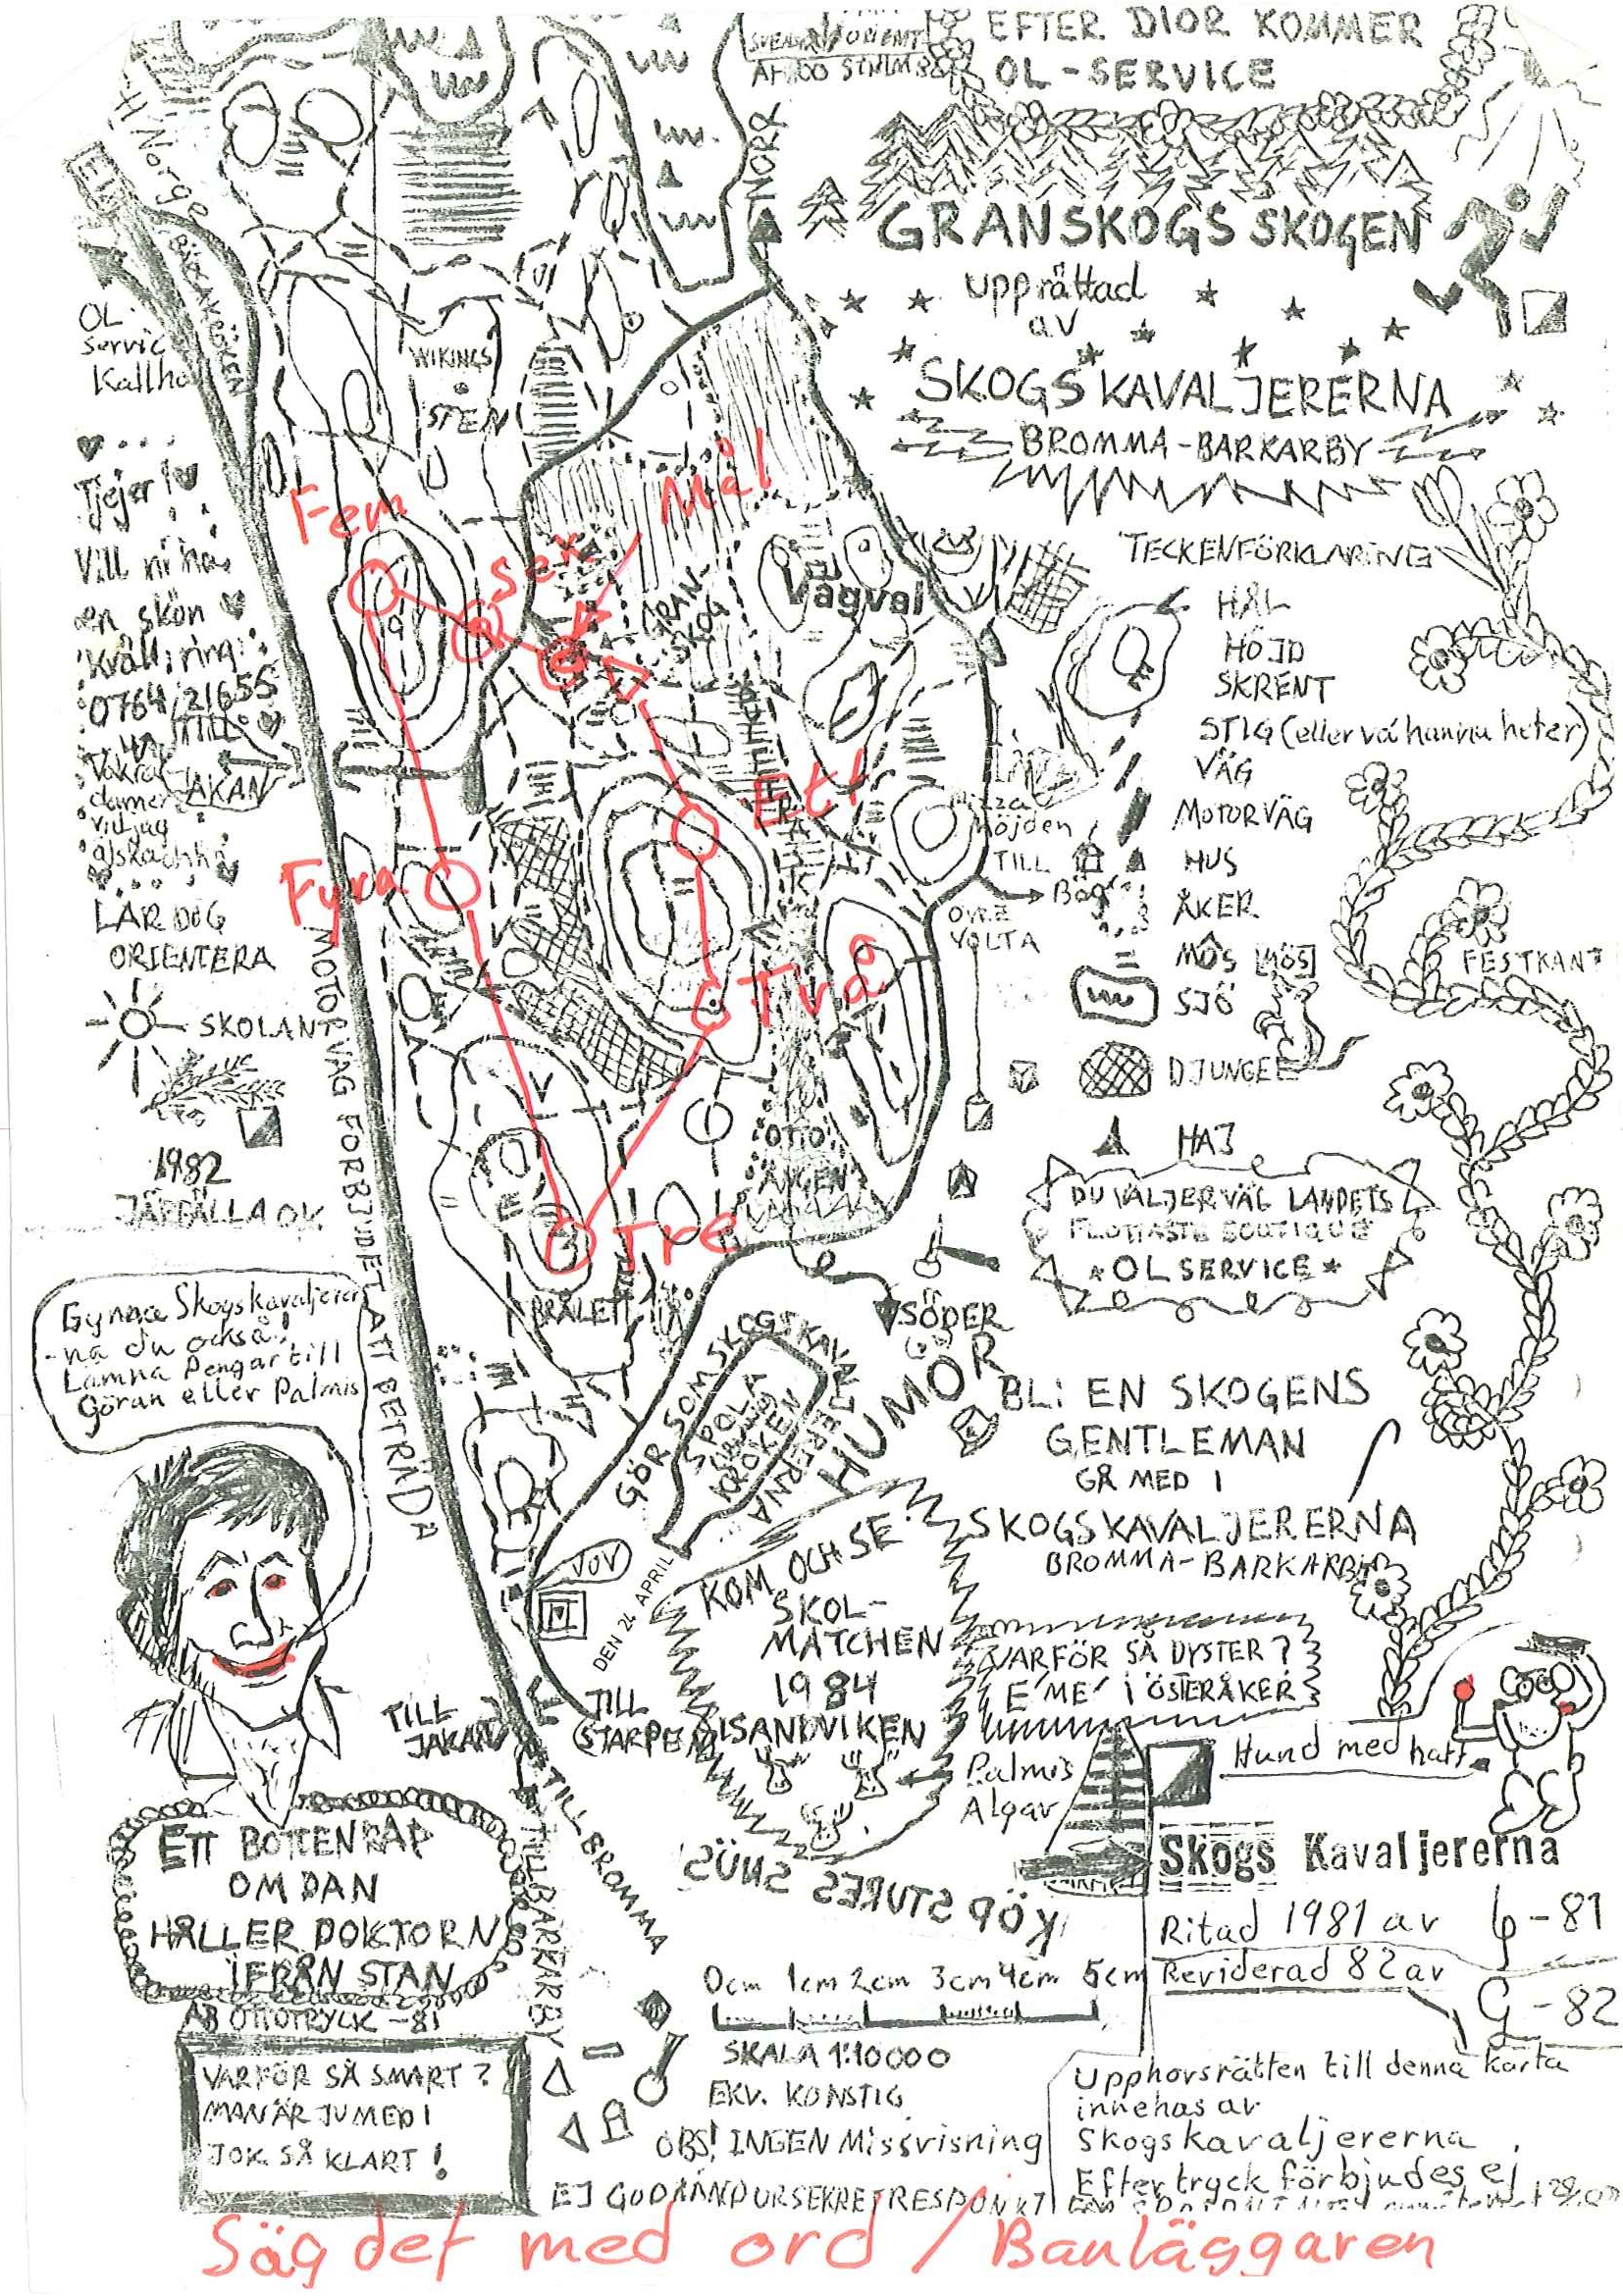 EFTER DIOR KOMMER
OL-SERVICE
NORR
GRANSKOGSSKOGEN
upprättad
av
SKOGSKAVALJERERNA
BROMMA-BARKARBY
H Norge
OL
Servic
Kallhä
WIKINGS
STEN
Tjejer!
Vill ni ha
en skön
kväll, ring
0764/21655
Fem
Sex
Mål
GRAN-
SKOG
Vägval
TECKENFÖRKLARING
HÅL
HÖJD
SKRENT
STIG (eller vá hannu heter)
VÄG
MOTORVÄG
HUS
ÅKER
MÔS [MÖS]
SJÖ
DJUNGEL
HAJ
FESTKANT
TILL
JAKAN
damer
vid jag
älskar
Ett
höjden
TILL
ÖVRE
VOLTA
Fyra
Två
LÄR DIG
ORIENTERA
SKOLAN
1982
JÄRFÄLLA OK
MOTORVÄG FÖRBJUDET ATT BETRÄDA
OTTO
ÄNGEN
Tre
DU VÄLJER VÄG LANDETS
FLOTTASTE BOUTIQUE
OL SERVICE
SÖDER
Gynna Skogskavaljerer
-na du också!
Lämna Pengar till
Göran eller Palmis
GÖR SOM SKOGSKAVALJERERNA
SPOLA
KRÖKEN
HUMÖR
BLI EN SKOGENS
GENTLEMAN
GÅ MED I
SKOGSKAVALJERERNA
BROMMA-BARKARBY
VOV
DEN 24 APRIL
KOM OCH SE
SKOL-
MATCHEN
1984
I SANDVIKEN
VARFÖR SÅ DYSTER?
E' ME' I ÖSTERÅKER
TILL
JAKAN
TILL
Palmis
Älgar
Hund med hatt
TILL BROMMA
TILL BARKARBY
KÖP STURES SNUS
ETT BOTTENRAP
OM DAN
HÅLLER DOKTORN
IFRÅN STAN
AB OTTOTRYCK -81
Skogs Kavaljererna
Ritad 1981 av G-81
Reviderad 82 av G-82
0cm 1cm 2cm 3cm 4cm 5cm
SKALA 1:10000
EKV. KONSTIG
OBS! INGEN Missvisning
VARFÖR SÅ SMART?
MAN ÄR JU MED I
JOK SÅ KLART!
Upphovsrätten till denna karta
innehas av
Skogskavaljererna
Eftertryck förbjudes ej
Säg det med ord / Banläggaren